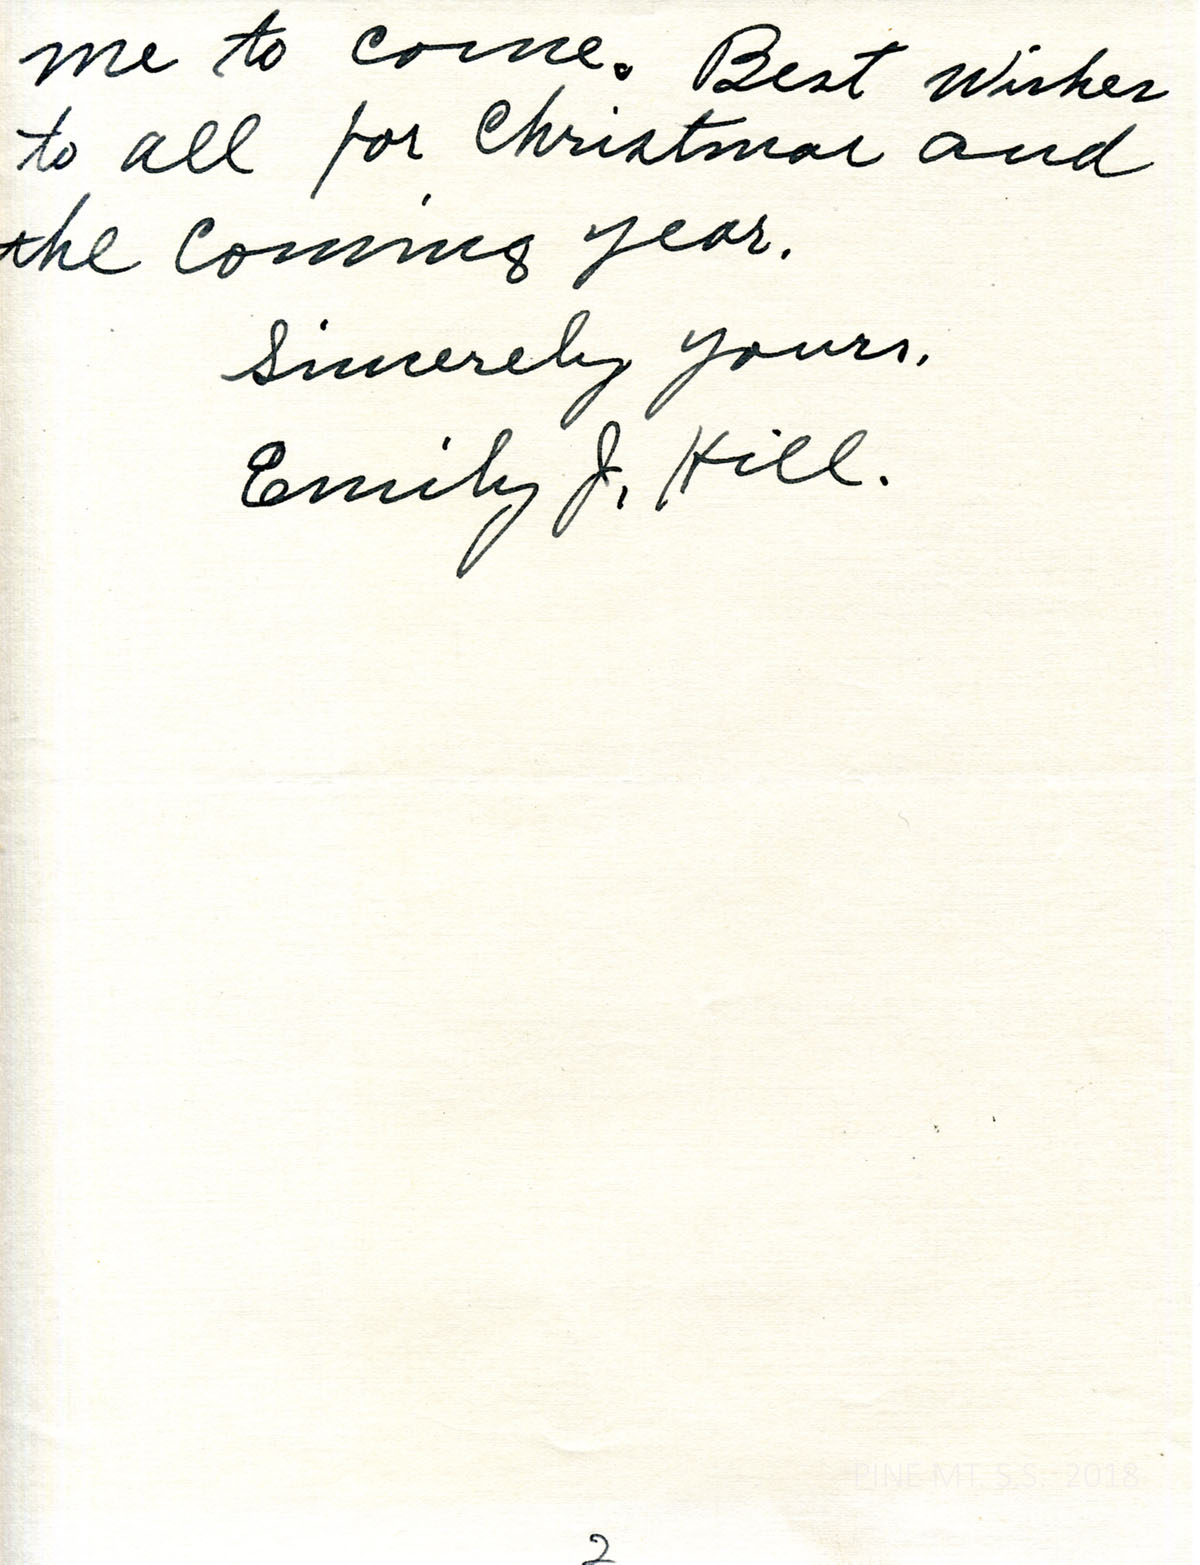 me to come. Best Wishes
to all for Christmas and
the Coming year.
Sincerely yours,
Emily J. Hill.
PINE MT. S.S. 2018
2